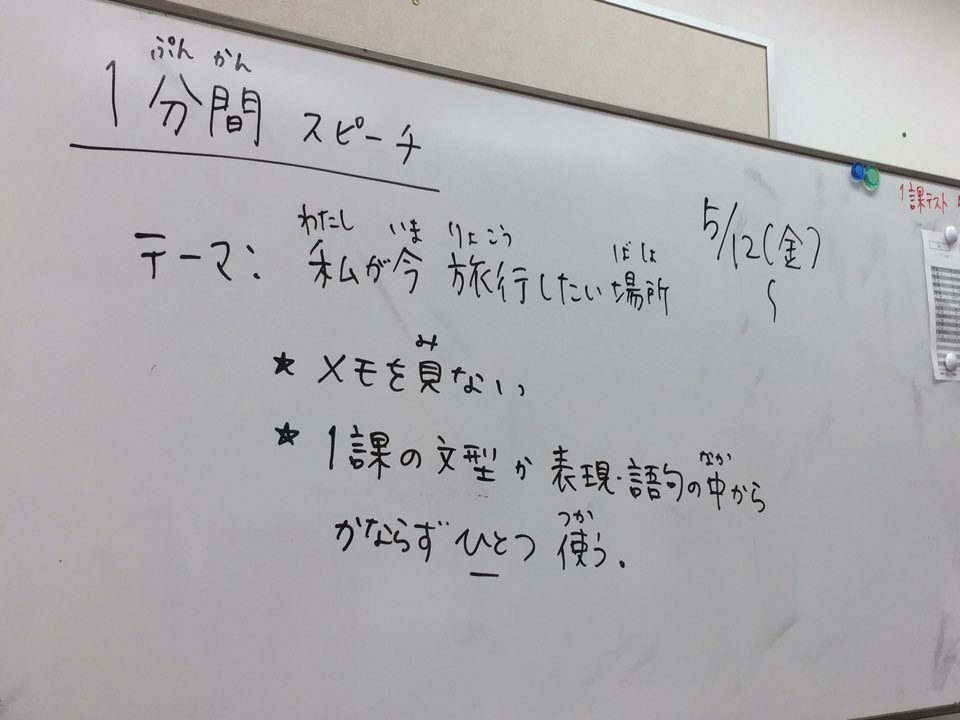 ぷん かん
1分間 スピーチ
わたし いま りょこう ばしょ
テーマ: 私が今 旅行したい場所
5/12(金)
〜
み
★ メモを見ない。
★ 1課の文型か表現・語句の中から
なか
かならず ひとつ 使う。
つか
1課テスト